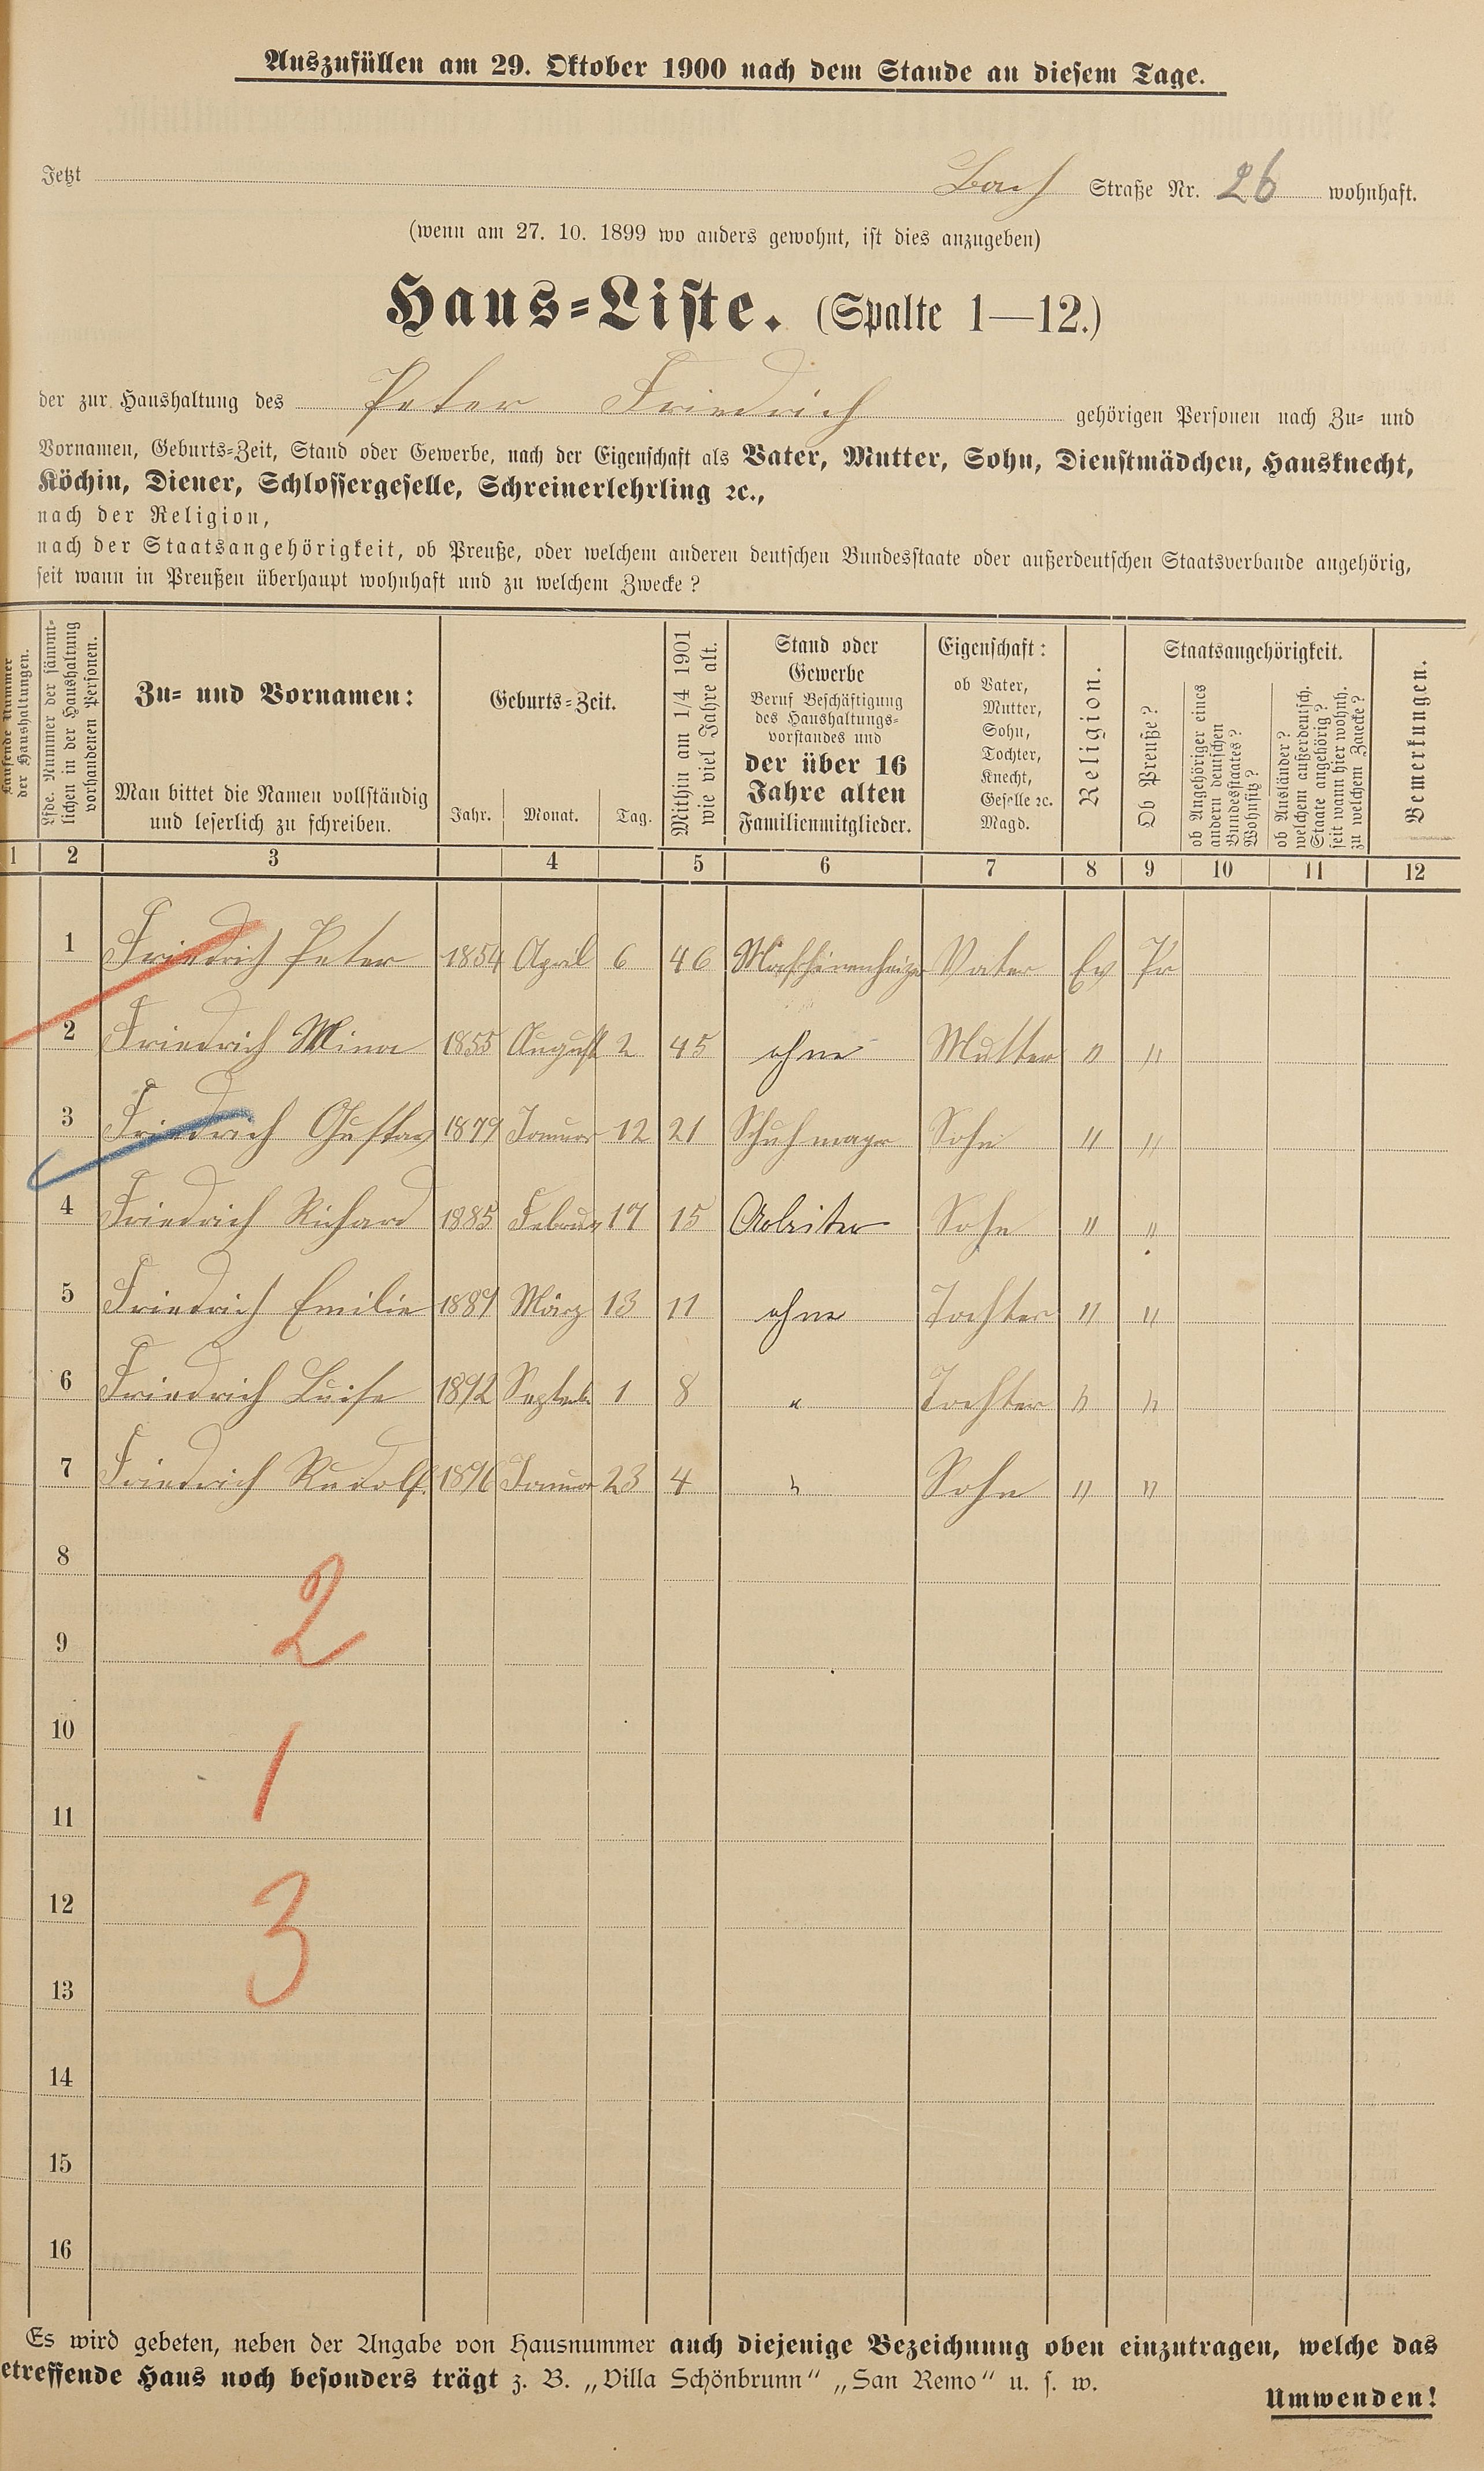 Auszufüllen am 29. Oktober 1900 nach dem Stande an diesem Tage.
Jetzt Bach Straße Nr. 26 wohnhaft.
(wenn am 27. 10. 1899 wo anders gewohnt, ist dies anzugeben)
Haus=Liste. (Spalte 1—12.)
der zur Haushaltung des Peter Friedrich gehörigen Personen nach Zu= und
Vornamen, Geburts=Zeit, Stand oder Gewerbe, nach der Eigenschaft als Vater, Mutter, Sohn, Dienstmädchen, Hausknecht,
Köchin, Diener, Schlossergeselle, Schreinerlehrling ꝛc.,
nach der Religion,
nach der Staatsangehörigkeit, ob Preuße, oder welchem anderen deutschen Bundesstaate oder außerdeutschen Staatsverbande angehörig,
seit wann in Preußen überhaupt wohnhaft und zu welchem Zwecke?
Laufende Nummer
der Haushaltungen.
Lfde. Nummer der sämmt=
lichen in der Haushaltung
vorhandenen Personen.
Zu= und Vornamen:
Man bittet die Namen vollständig
und leserlich zu schreiben.
Geburts=Zeit.
Jahr. Monat. Tag.
Mithin am 1/4 1901
wie viel Jahre alt.
Stand oder
Gewerbe
Beruf Beschäftigung
des Haushaltungs=
vorstandes und
der über 16
Jahre alten
Familienmitglieder.
Eigenschaft:
ob Vater,
Mutter,
Sohn,
Tochter,
Knecht,
Geselle ꝛc.
Magd.
Religion.
Staatsangehörigkeit.
Ob Preuße?
ob Angehöriger eines
andern deutschen
Bundesstaates?
Wohnsitz?
ob Ausländer?
welchem außerdeutsch.
Staate angehörig?
seit wann hier wohnh.
zu welchem Zwecke?
Bemerkungen.
1 2 3 4 5 6 7 8 9 10 11 12
1 Friedrich Peter 1854 April 6 46 Maschinenheizer Vater Ev Pr
2 Friedrich Mina 1855 August 2 45 ohne Mutter " "
3 Friedrich Gustav 1879 Januar 12 21 Sohn " "
4 Friedrich Richard 1885 Februar 17 15 Arbeiter Sohn " "
5 Friedrich Emilie 1889 März 13 11 ohne Tochter " "
6 Friedrich Luise 1892 Septemb 1 8 " Tochter " "
7 Friedrich Rudolf 1896 Januar 23 4 " Sohn " "
8
2
9
10
1
11
12
3
13
14
15
16
Es wird gebeten, neben der Angabe von Hausnummer auch diejenige Bezeichnung oben einzutragen, welche das
etreffende Haus noch besonders trägt z. B. „Villa Schönbrunn“ „San Remo“ u. s. w.
Umwenden!